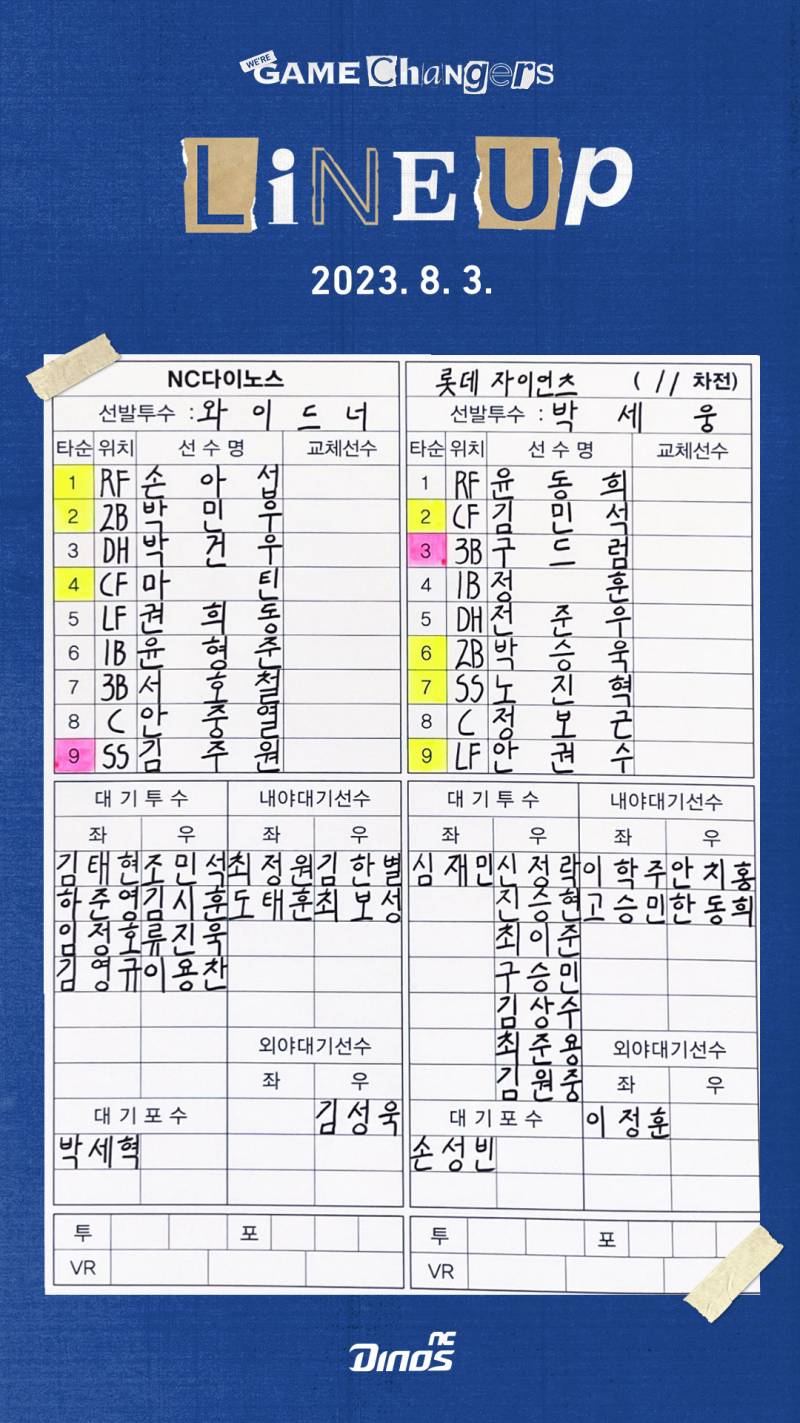 WE'RE GAME ChaNgerS
LiNEUp
2023. 8. 3.
NC다이노스
선발투수 : 와이드너
타순 위치 선수명 교체선수
1 RF 손아섭
2 2B 박민우
3 DH 박건우
4 CF 마틴
5 LF 권희동
6 1B 윤형준
7 3B 서호철
8 C 안중열
9 SS 김주원
대기투수 내야대기선수
좌 우 좌 우
김태현 조민석 최정원 김한별
하준영 김시훈 도태훈 최보성
임정호 류진욱
김영규 이용찬
외야대기선수
좌 우
대기포수 김성욱
박세혁
투 포
VR
롯데 자이언츠 ( 11 차전)
선발투수 : 박세웅
타순 위치 선수명 교체선수
1 RF 윤동희
2 CF 김민석
3 3B 구드럼
4 1B 정훈
5 DH 전준우
6 2B 박승욱
7 SS 노진혁
8 C 정보근
9 LF 안권수
대기투수 내야대기선수
좌 우 좌 우
심재민 신정락 이학주 안치홍
진승현 고승민 한동희
최이준
구승민
김상수
최준용 외야대기선수
김원중 좌 우
대기포수 이정훈
손성빈
투 포
VR
NC
DINOS